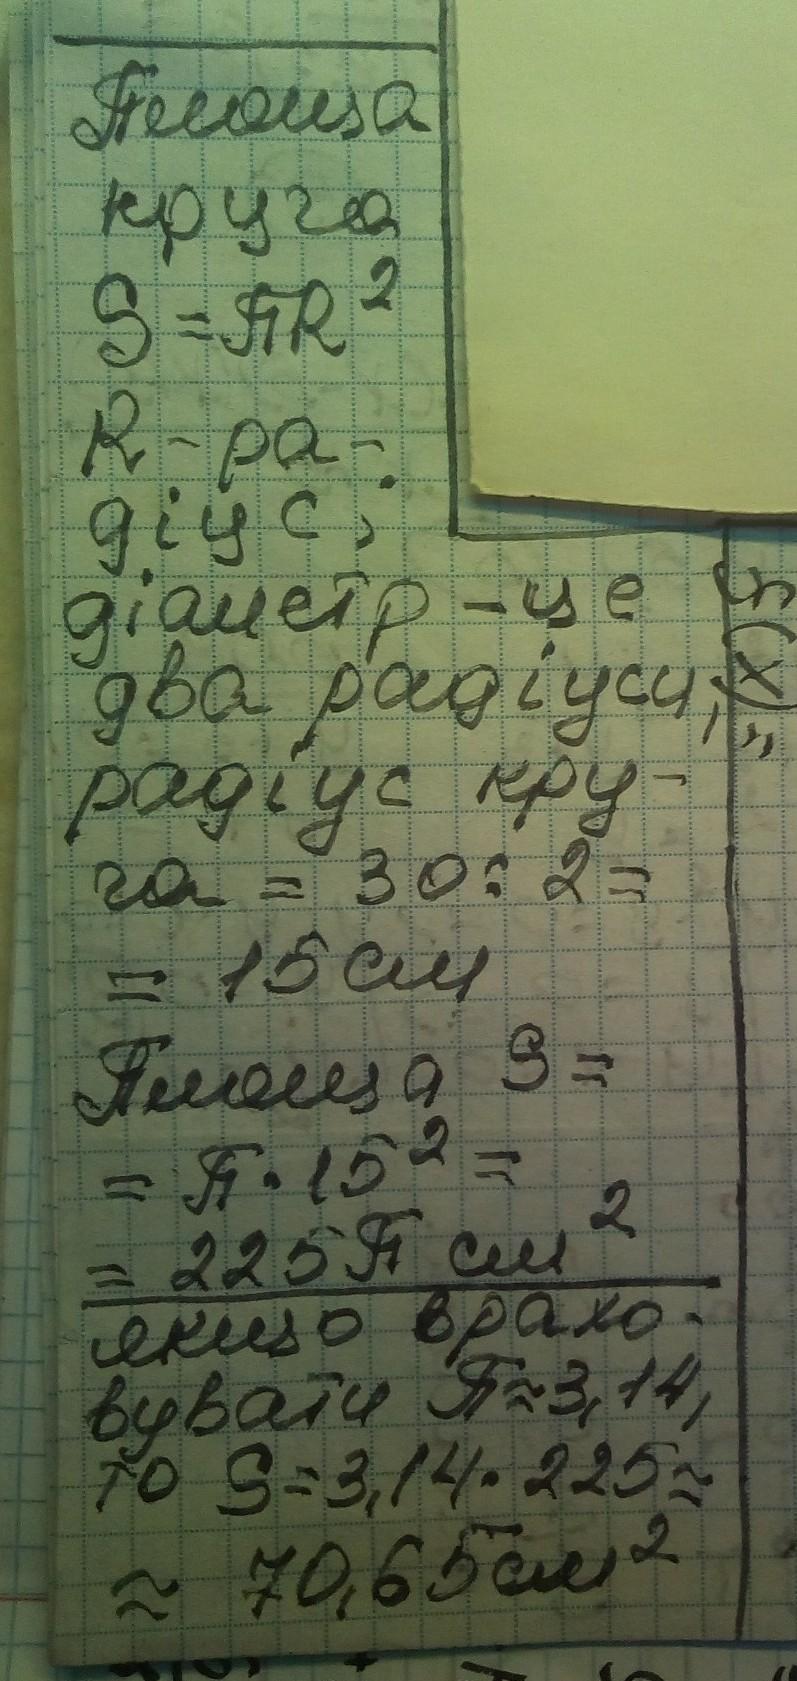 Площа
круга
S = πR²
R - ра-
діус;
діаметр - це
два радіуси,
радіус кру-
га = 30 : 2 =
= 15 см
Площа S =
= π · 15² =
= 225π см²
якщо врахо-
вувати π ≈ 3,14,
то S = 3,14 · 225 ≈
≈ 70,65 см²